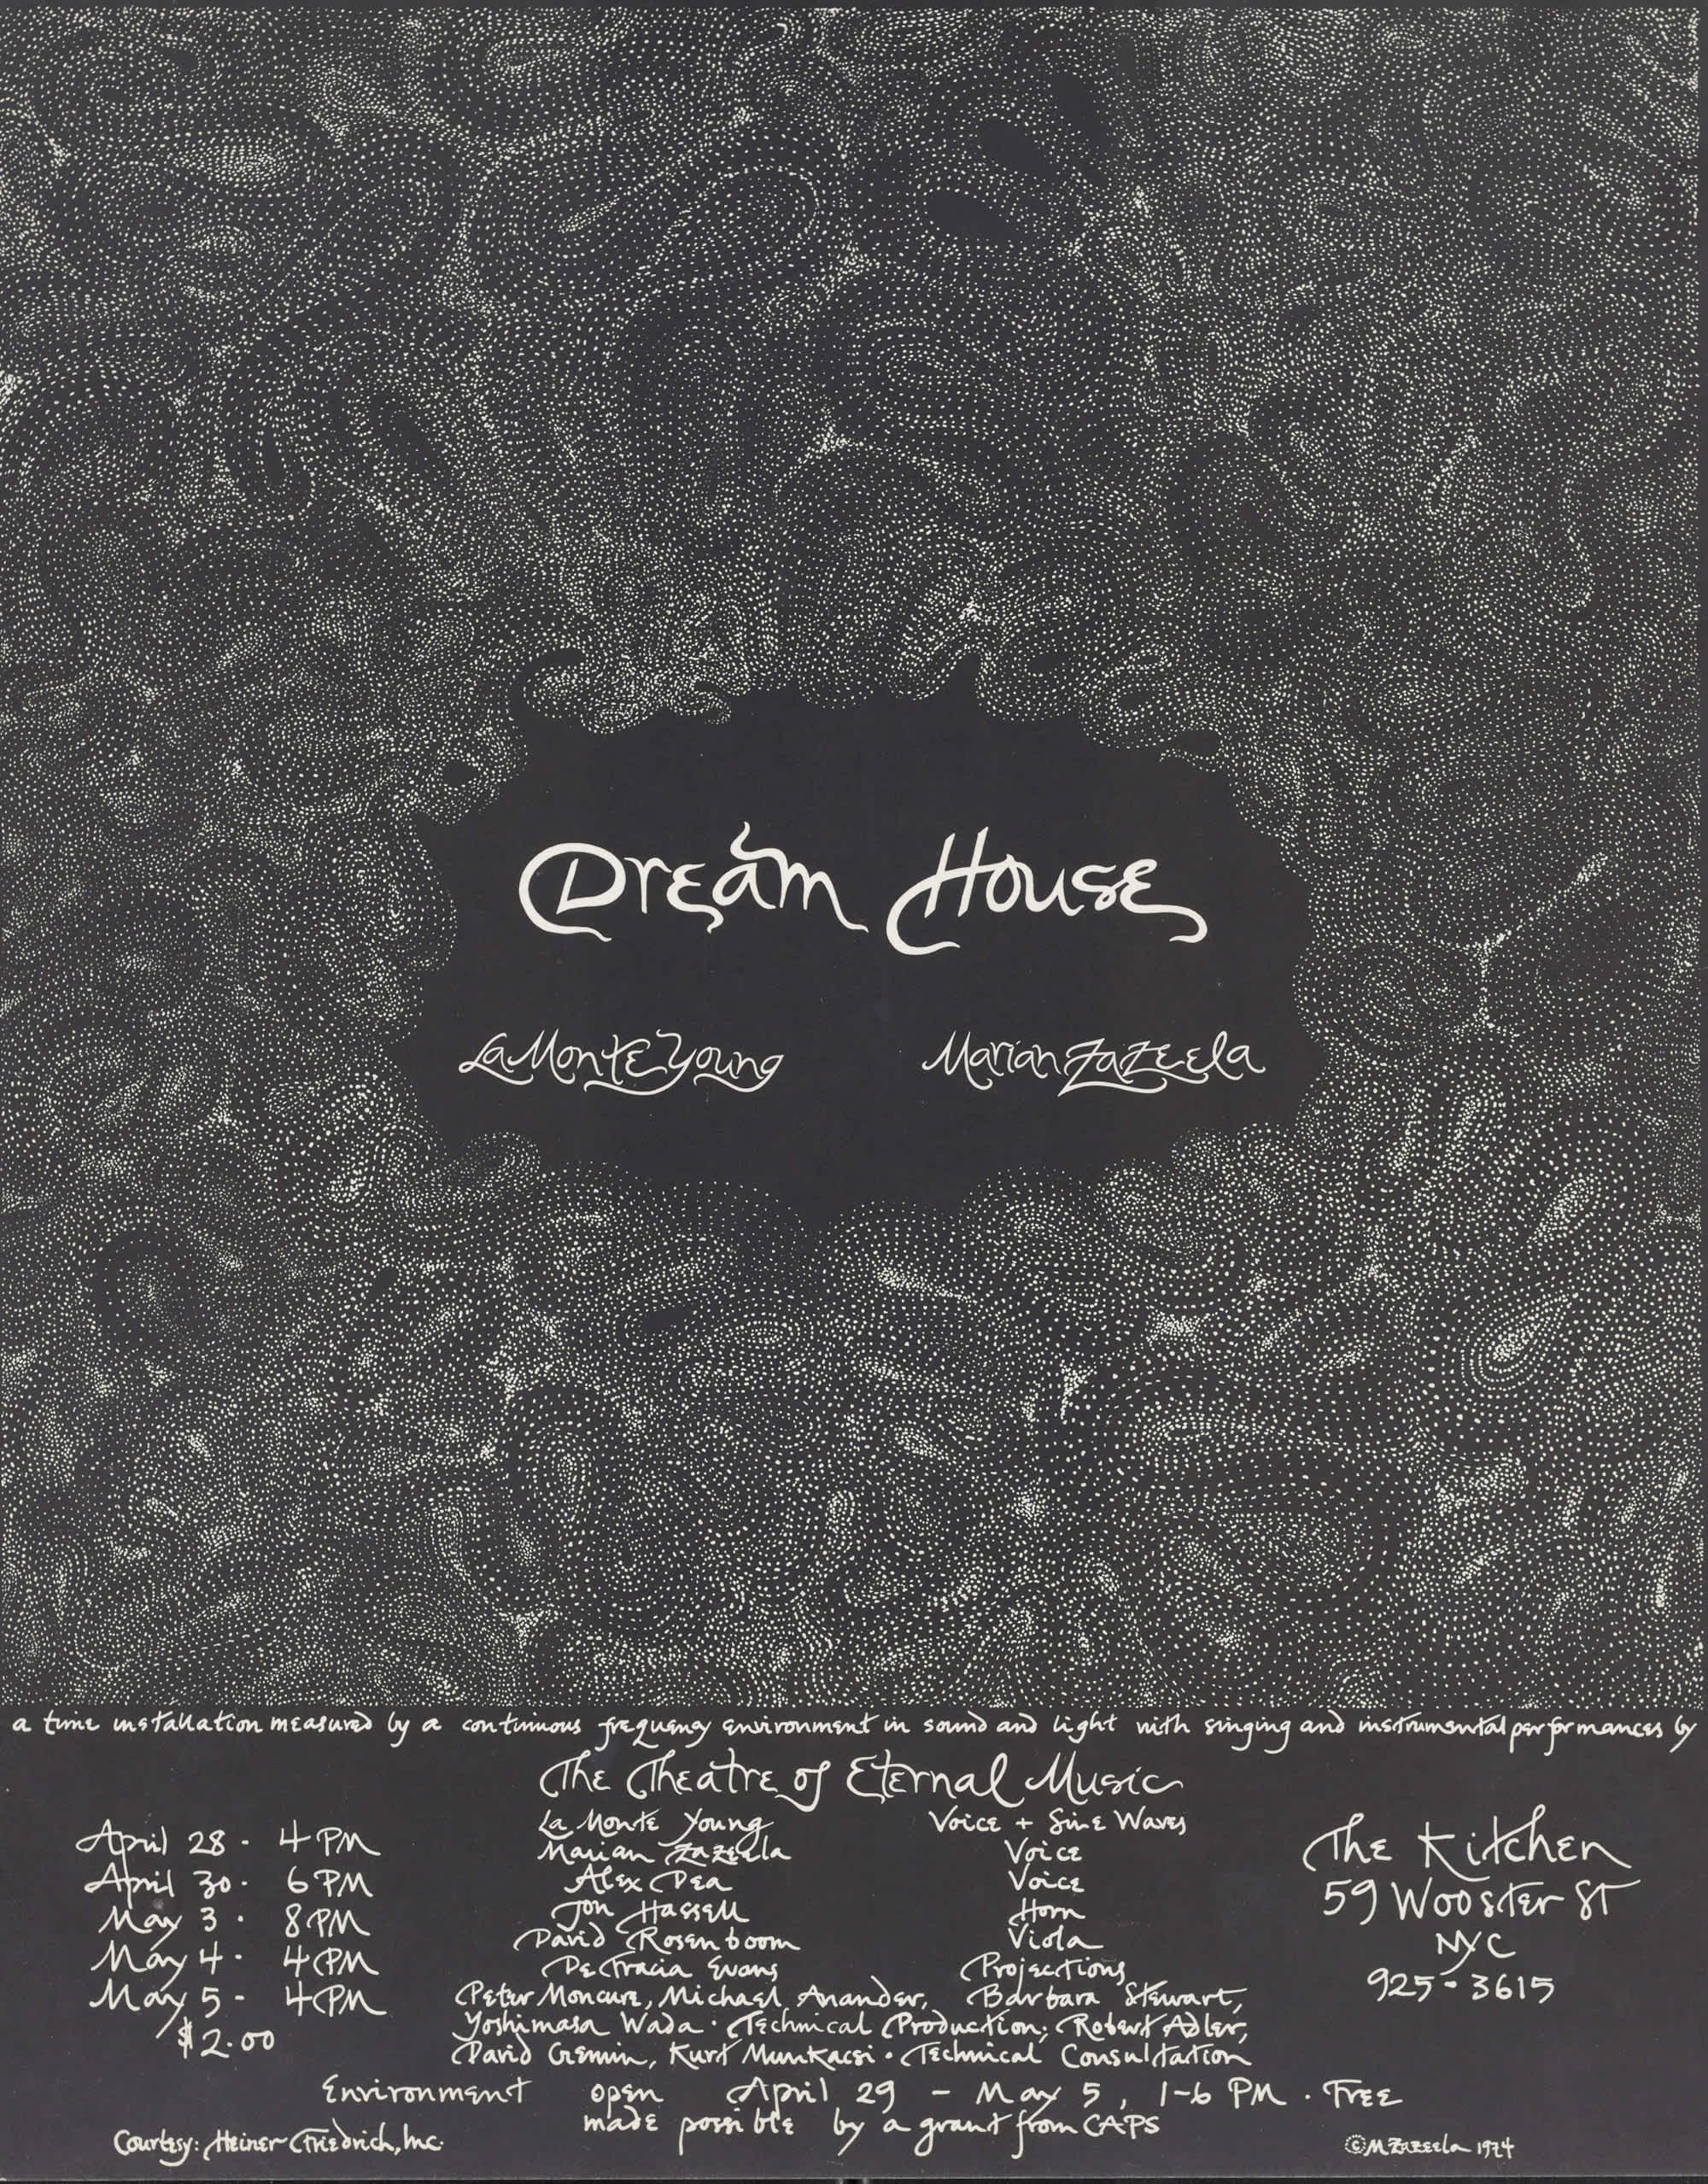 Dream House
La Monte Young Marian Zazeela
a time installation measured by a continuous frequency environment in sound and light with singing and instrumental performances by
The Theatre of Eternal Music
La Monte Young Voice + Sine Waves
Marian Zazeela Voice
Alex Dea Voice
Jon Hassell Horn
David Rosenboom Viola
DeFracia Evans Projections
Peter Moncure, Michael Anander, Barbara Stewart,
Yoshimasa Wada · Technical Production; Robert Adler,
David Gemin, Kurt Munkacsi · Technical Consultation
April 28 · 4 PM
April 30 · 6 PM
May 3 · 8 PM
May 4 · 4 PM
May 5 - 4 PM
$2.00
The Kitchen
59 Wooster St
NYC
925-3615
Environment open April 29 - May 5, 1-6 PM · Free
made possible by a grant from CAPS
Courtesy: Heiner Friedrich, Inc.
© M Zazeela 1974